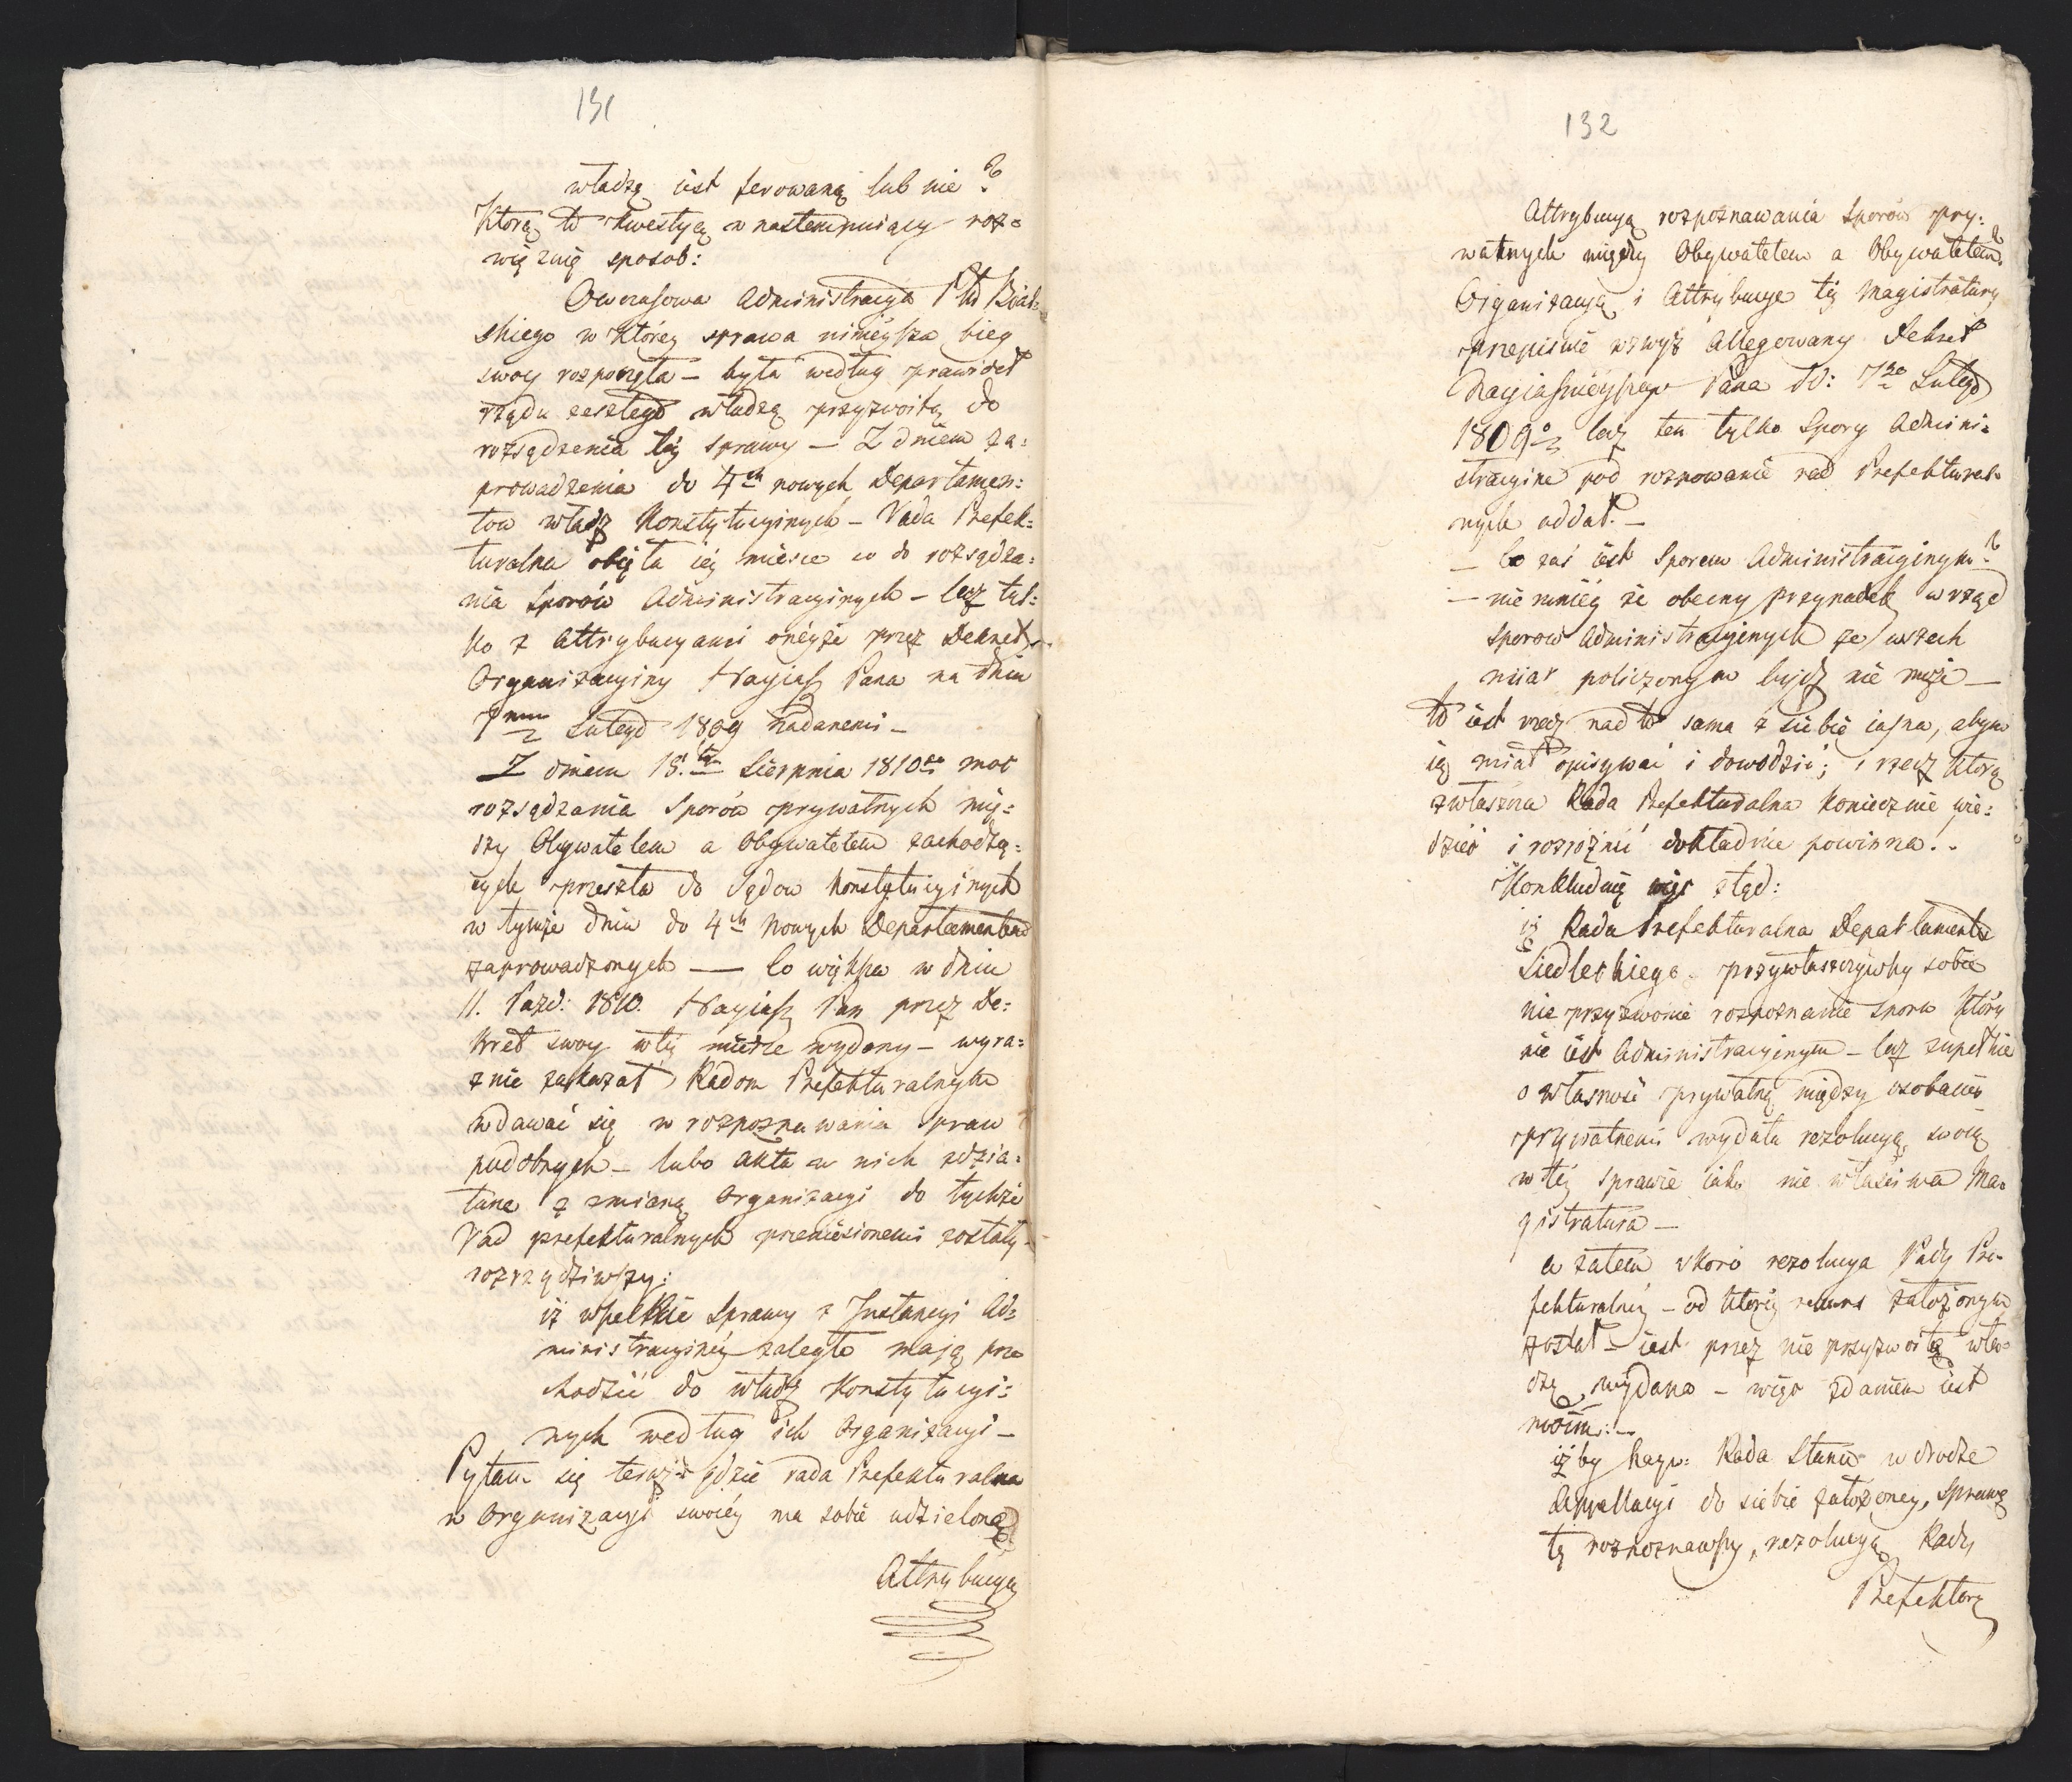 131
władzę iest ferowaną lub nie?
Którą to kwestyą w nastempuiący roz=
wiąznię sposób:
Owczasowa Administracya Ptu Bial=
skiego w któréy sprawa ninieysza bieg
swoy rozpoczęła – była według prawideł
rządu zeszłego władzą przyzwoitą do
rozsądzenia téy sprawy – Z dniem za=
prowadzenia do 4ch nowych Departamen=
tow władz Konstytucyinych – Rada Prefek=
turalna obięła iéy mieysce co do rozsądza=
nia Sporów Administracyinych – lecz tyl=
ko z attrybucyami onéyże przez Dekret
Organizacyiny Nayiaś: Pana na dniu
7mm Lutego 1809 nadanemi –
Z dniem 15.tm Sierpnia 1810go moc
rozsądzania Sporów prywatnych mię=
dzy Obywatelem a Obywatelem zachodzą=
cych przeszła do Sądow Konstytucyinych
w tymże dniu do 4ch Nowych Departamentow
zaprowadzonych — Co większa w dniu
11. Pazd: 1810. Nayiaś: Pan przez De=
kret swoy w téy mierze wydany – wyra=
znie zakazał Radom Prefekturalnym
wdawać się w rozpoznawania Spraw
podobnych – lubo akta w nich zdzia=
łane z zmianą Organizacyi do tychże
Rad prefekturalnych przeniesionemi zostały –
rozrządziwszy:
iż wszelkie Sprawy z Instancyi Ad=
ministracyinéy zaległe mają prze
chodzić do władz Konstytucyi=
nych według ich Organizacyi –
Pytam się teraz gdzie rada Prefekturalna
w Organizacyi swoiéy ma sobie udzieloną
Attrybucyą
132
Attrybucyą rozpoznawania Sporów pry=
watnych między Obywatelem a Obywatelem?
Organizacyą i Attrybucye téy Magistratury
przepisuie wzwyż allegowany Dekret
Nayiaśnieyszego Pana D: 7go Lutego
1809o lecz ten tylko Spory Admini=
stracyine pod rozpoznanie rad Prefektural=
nych oddał. –
– Co zaś iest Sporem Administracyinym?
– nie mniéy że obecny przypadek w rząd
sporow Administracyinych ze wszech
miar policzonym bydź nie może –
to iest rzecz nad to sama z siebie iasna, abym
ią miał opisywać i dowodzić; rzecz którą
zwłaszcza Rada Prefekturalna koniecznie wie=
dzieć i rozróżnić dokładnie powinna. .
Konkluduię więc ztąd:
iż Rada Prefekturalna Departamentu
Siedleckiego przywłaszczywszy sobie
nie przyzwoicie rozpoznanie sporu który
nie iest Administracyinym – lecz zupełnie
o własność prywatną między osobami
prywatnemi wydała rezolucyą swoią
w téy sprawie iako nie właściwa Ma=
gistratura –
a zatem skoro rezolucya Rady Pre=
fekturalnéy – od któréy rekurs założonym
został – iest przez nie przyzwoitą wła=
dzę wydana – więc zdaniem iest
moim: –
iżby Nayw: Rada Stanu w drodze
Appellacyi do siebie założoney, Sprawę
tę rozpoznawszy, rezolucyą Rady
Prefektury